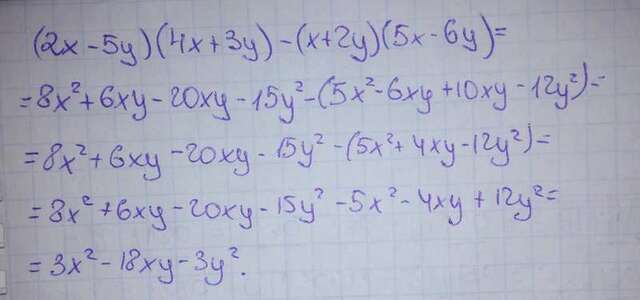 (2x - 5y)(4x + 3y) - (x + 2y)(5x - 6y) =
= 8x² + 6xy - 20xy - 15y² - (5x² - 6xy + 10xy - 12y²) =
= 8x² + 6xy - 20xy - 15y² - (5x² + 4xy - 12y²) =
= 8x² + 6xy - 20xy - 15y² - 5x² - 4xy + 12y² =
= 3x² - 18xy - 3y².